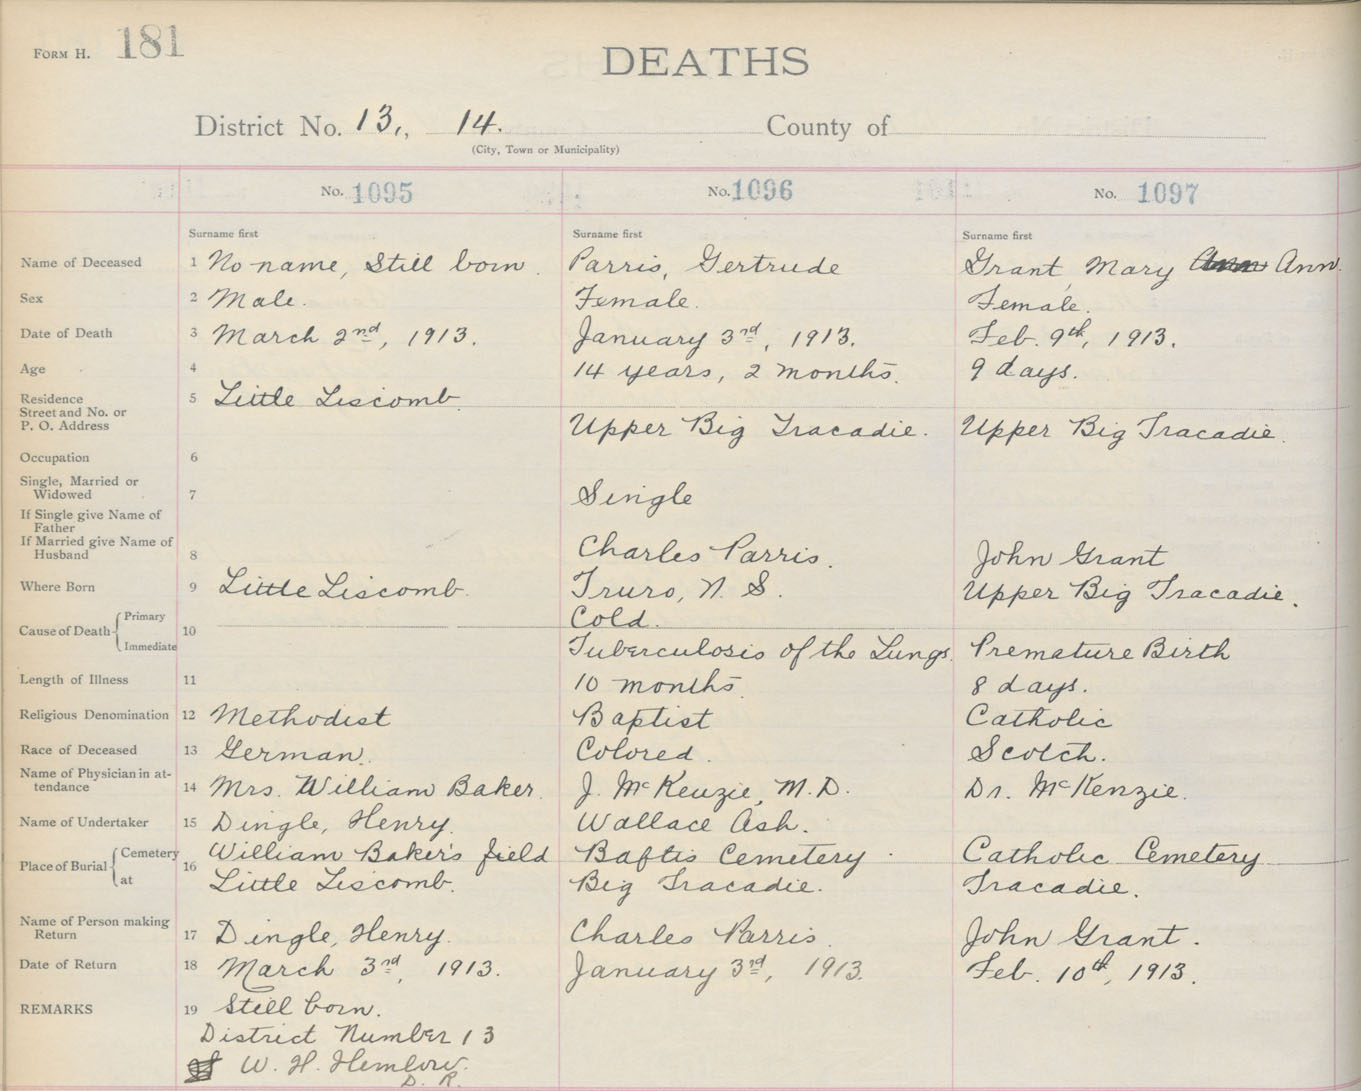 FORM H. 181
DEATHS
District No. 13,, 14. County of
(City, Town or Municipality)
No. 1095 No. 1096 No. 1097
Surname first Surname first Surname first
Name of Deceased 1 No name, Still born. Parris, Gertrude Grant, Mary Ann Ann.
Sex 2 Male. Female. Female.
Date of Death 3 March 2nd, 1913. January 3rd, 1913. Feb. 9th, 1913.
Age 4 14 years, 2 months. 9 days.
Residence 5 Little Liscomb.
Street and No. or
P. O. Address Upper Big Tracadie. Upper Big Tracadie.
Occupation 6
Single, Married or
Widowed 7 Single
If Single give Name of
Father
If Married give Name of
Husband 8 Charles Parris. John Grant
Where Born 9 Little Liscomb. Truro, N. S. Upper Big Tracadie.
Cause of Death Primary 10 Cold.
Immediate Tuberculosis of the Lungs. Premature Birth
Length of Illness 11 10 months. 8 days.
Religious Denomination 12 Methodist Baptist Catholic
Race of Deceased 13 German. Colored. Scotch.
Name of Physician in at-
tendance 14 Mrs. William Baker. J. McKenzie, M.D. Dr. McKenzie.
Name of Undertaker 15 Dingle, Henry. Wallace Ash.
Place of Burial Cemetery 16 William Baker's field Baftis Cemetery. Catholic Cemetery
at Little Liscomb. Big Tracadie. Tracadie.
Name of Person making
Return 17 Dingle, Henry. Charles Parris. John Grant.
Date of Return 18 March 3rd, 1913. January 3rd, 1913. Feb. 10th, 1913.
REMARKS 19 Still born.
District Number 13
W. H. Hemlow.
D. R.